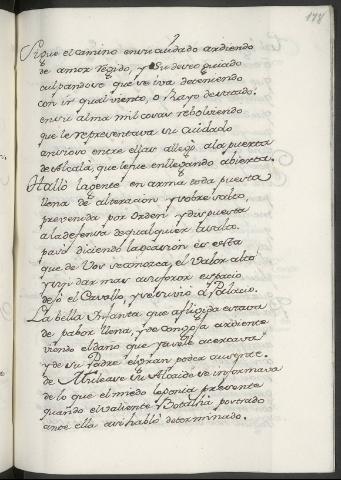 178
Sigue el camino en su cuidado ardiendo
de amor regido, y su deseo guiado
culpandose que se iva deteniendo
con ir qual viento, o Rayo desatado.
en su alma mil cosas rebolviendo
que le representava su cuidado
ansioso entre ellas allegó a la puerta
de Alcalá, que le fue en llegando abierta.
Halló la gente en arma toda puesta
llena de alteracion y sobresalto,
prevenida por orden y dispuesta
a la defensa de qualquier asalto.
pasó diciendo la ocasion es esta
que de Vos se conozca, el valor alto
y sin dar mas a su furor espacio
dejó el Cavallo, y se subió a Palacio.
La bella Infanta que afligida estava
de pabor llena, y de congoja
viendo el daño que ya se le acercava
y de su Padre el gran poder ausente.
de su Alcaide se informava
de lo que el miedo le ponia presente
quando el valiente Botalhá postrado
ante ella asi habló determinado.